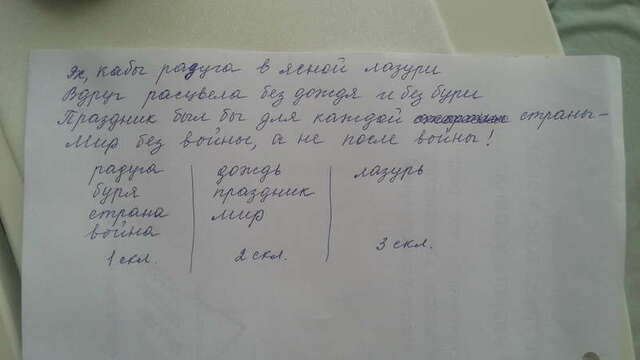 Эх, кабы радуга в ясной лазури
Вдруг расцвела без дождя и без бури
Праздник был бы для каждой страны –
Мир без войны, а не после войны!
радуга дождь лазурь
буря праздник
страна мир
война
1 скл. 2 скл. 3 скл.